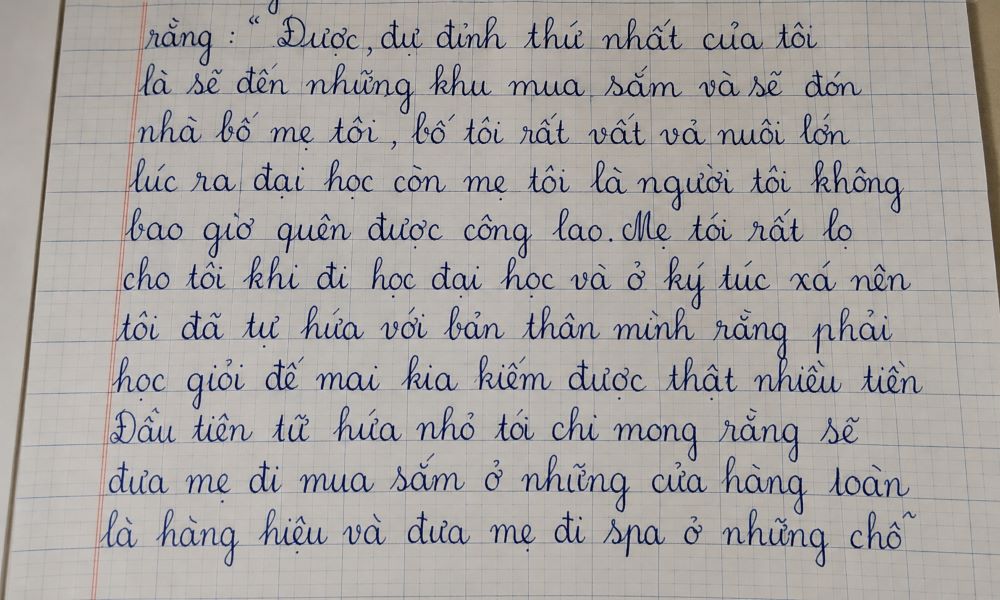 rằng : “ Được, dự định thứ nhất của tôi
là sẽ đến những khu mua sắm và sẽ đón
nhà bố mẹ tôi , bố tôi rất vất vả nuôi lớn
lúc ra đại học còn mẹ tôi là người tôi không
bao giờ quên được công lao. Mẹ tói rất lo
cho tôi khi đi học đại học và ở ký túc xá nên
tôi đã tự hứa với bản thân mình rằng phải
học giỏi để mai kia kiếm được thật nhiều tiền
Đầu tiên từ hứa nhỏ tói chi mong rằng sẽ
đưa mẹ đi mua sắm ở những cửa hàng toàn
là hàng hiệu và đưa mẹ đi spa ở những chỗ